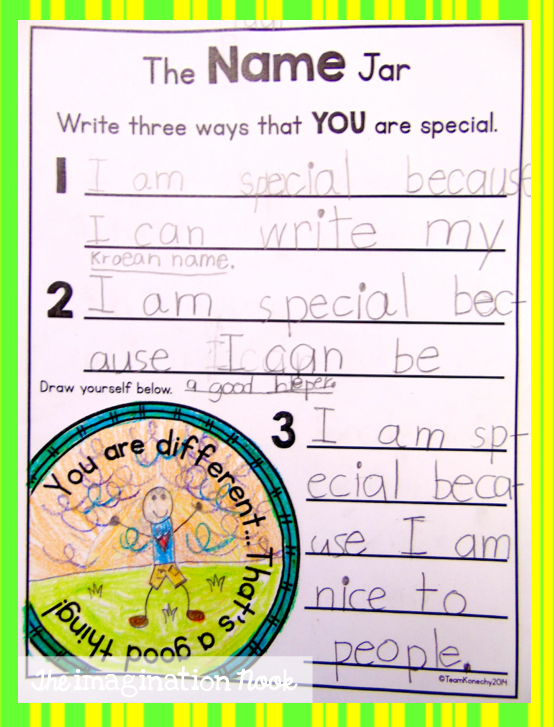 The Name Jar
Write three ways that YOU are special.
1 I am special because
I can write my
Kroean name.
2 I am special bec-
ause I can be
Draw yourself below. a good heper.
3 I am sp-
ecial beca-
use I am
nice to
people.
You are different... That's a good thing!
The imagination Nook
©TeamKonechy2014